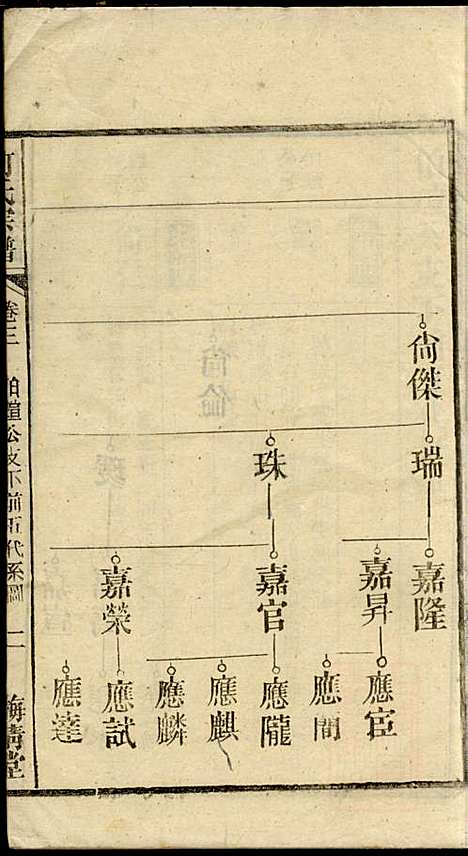 尙傑
瑞
珠
嘉隆
嘉昇
嘉官
嘉榮
應宦
應間
應隴
應麒
應麟
應試
應達
氏宗譜
卷三
公支下前五代系圖
二
海清堂